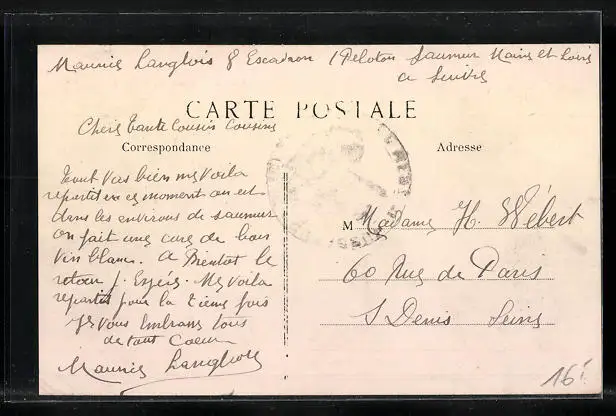 Maurice Langlois 8 Escadron 1 Peloton Saumur Maine et Loire
a Suivre
CARTE POSTALE
Chers Tante Cousin Cousins
Correspondance
Adresse
Tout vas bien me voila
repartit en ce moment on est
dans les environs de Saumur
on fait une cure de bon
Vin blanc. A Bientot le
retour j. Espere. Me voila
repartit pour la 2ieme fois
Je vous Embrasse tous
de tout Coeur
Maurice Langlois
M Madame H. Wébert
60 Rue de Paris
S Denis Seine
16